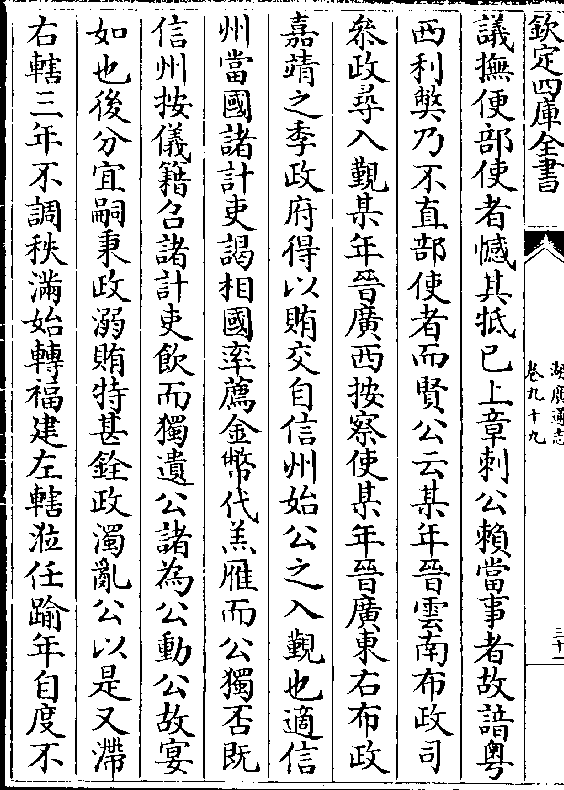 欽定四庫全書
湖廣通志
卷九十九
三十一
議撫便部使者憾其牴已上章刺公賴當事者故諳粤
西利獘乃不直部使者而賢公云某年晉雲南布政司
叅政尋入覲某年晉廣西按察使某年晉廣東右布政
嘉靖之季政府得以賄交自信州始公之入覲也適信
州當國諸計吏謁相國率薦金幣代羔雁而公獨否既
信州按儀籍召諸計吏飲而獨遺公諸為公動公故宴
如也後分宜嗣秉政溺賄特甚銓政濁亂公以是又滯
右轄三年不調秩滿始轉福建左轄涖任踰年自度不